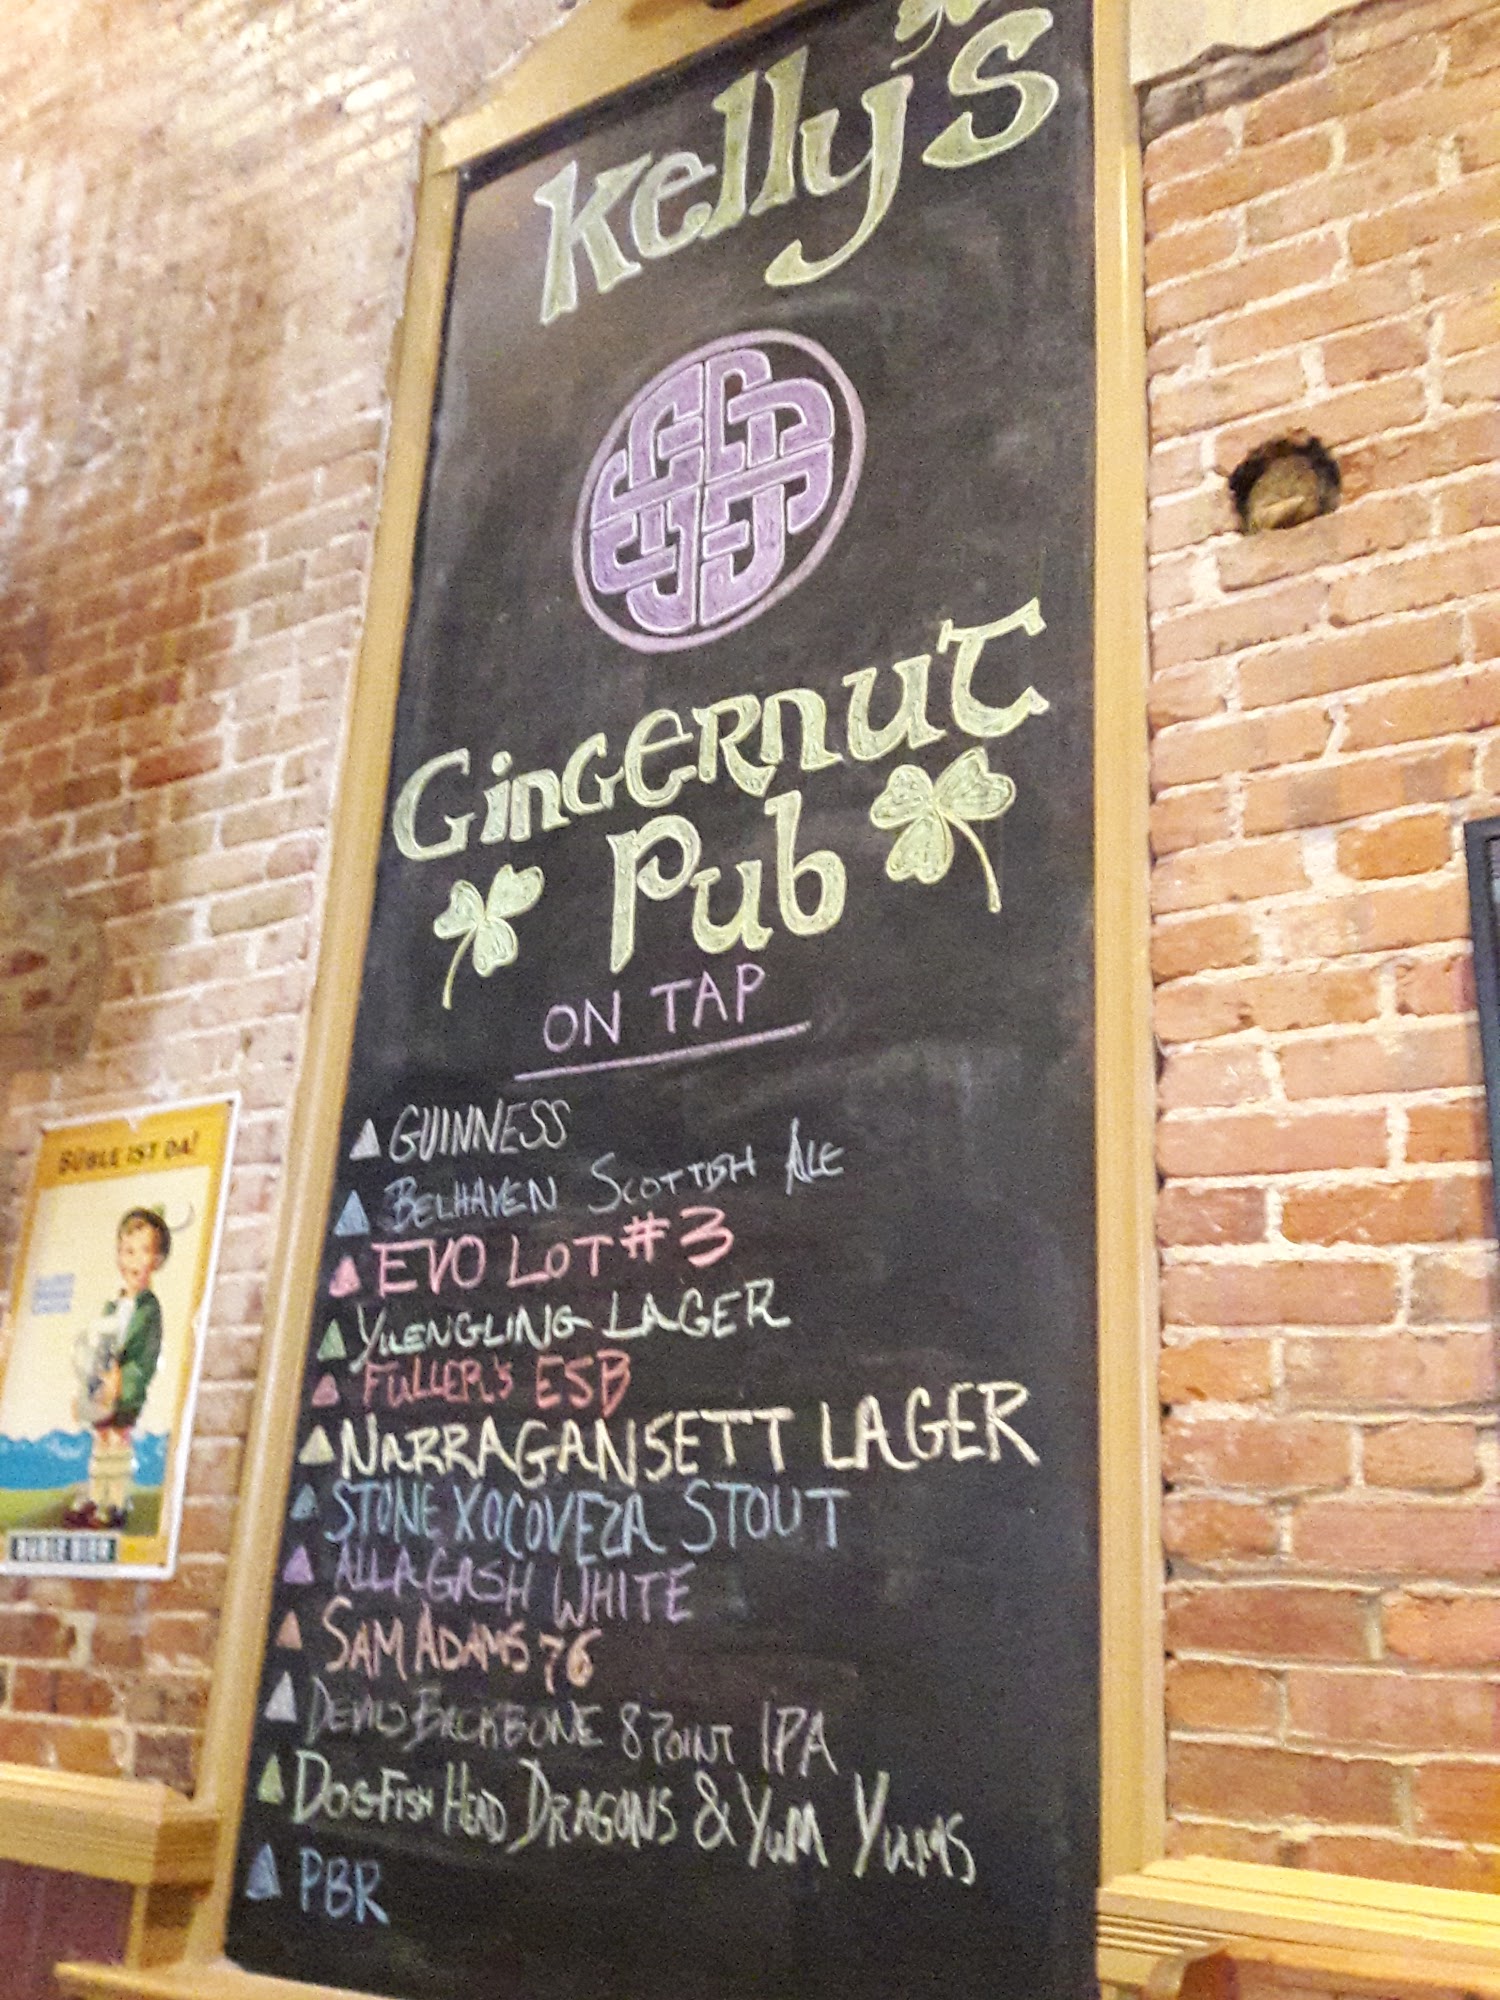 Kelly's
GingERnuT
Pub
ON TAP
GUINNESS
BELHAVEN SCOTTISH ALE
EVO LOT #3
YUENGLING LAGER
FULLER'S ESB
NARRAGANSETT LAGER
STONE XOCOVEZA STOUT
ALLAGASH WHITE
SAM ADAMS 76
DEVILS BACKBONE 8 POINT IPA
DOGFISH HEAD DRAGONS & YUM YUMS
PBR
BÜBLE IST DA!